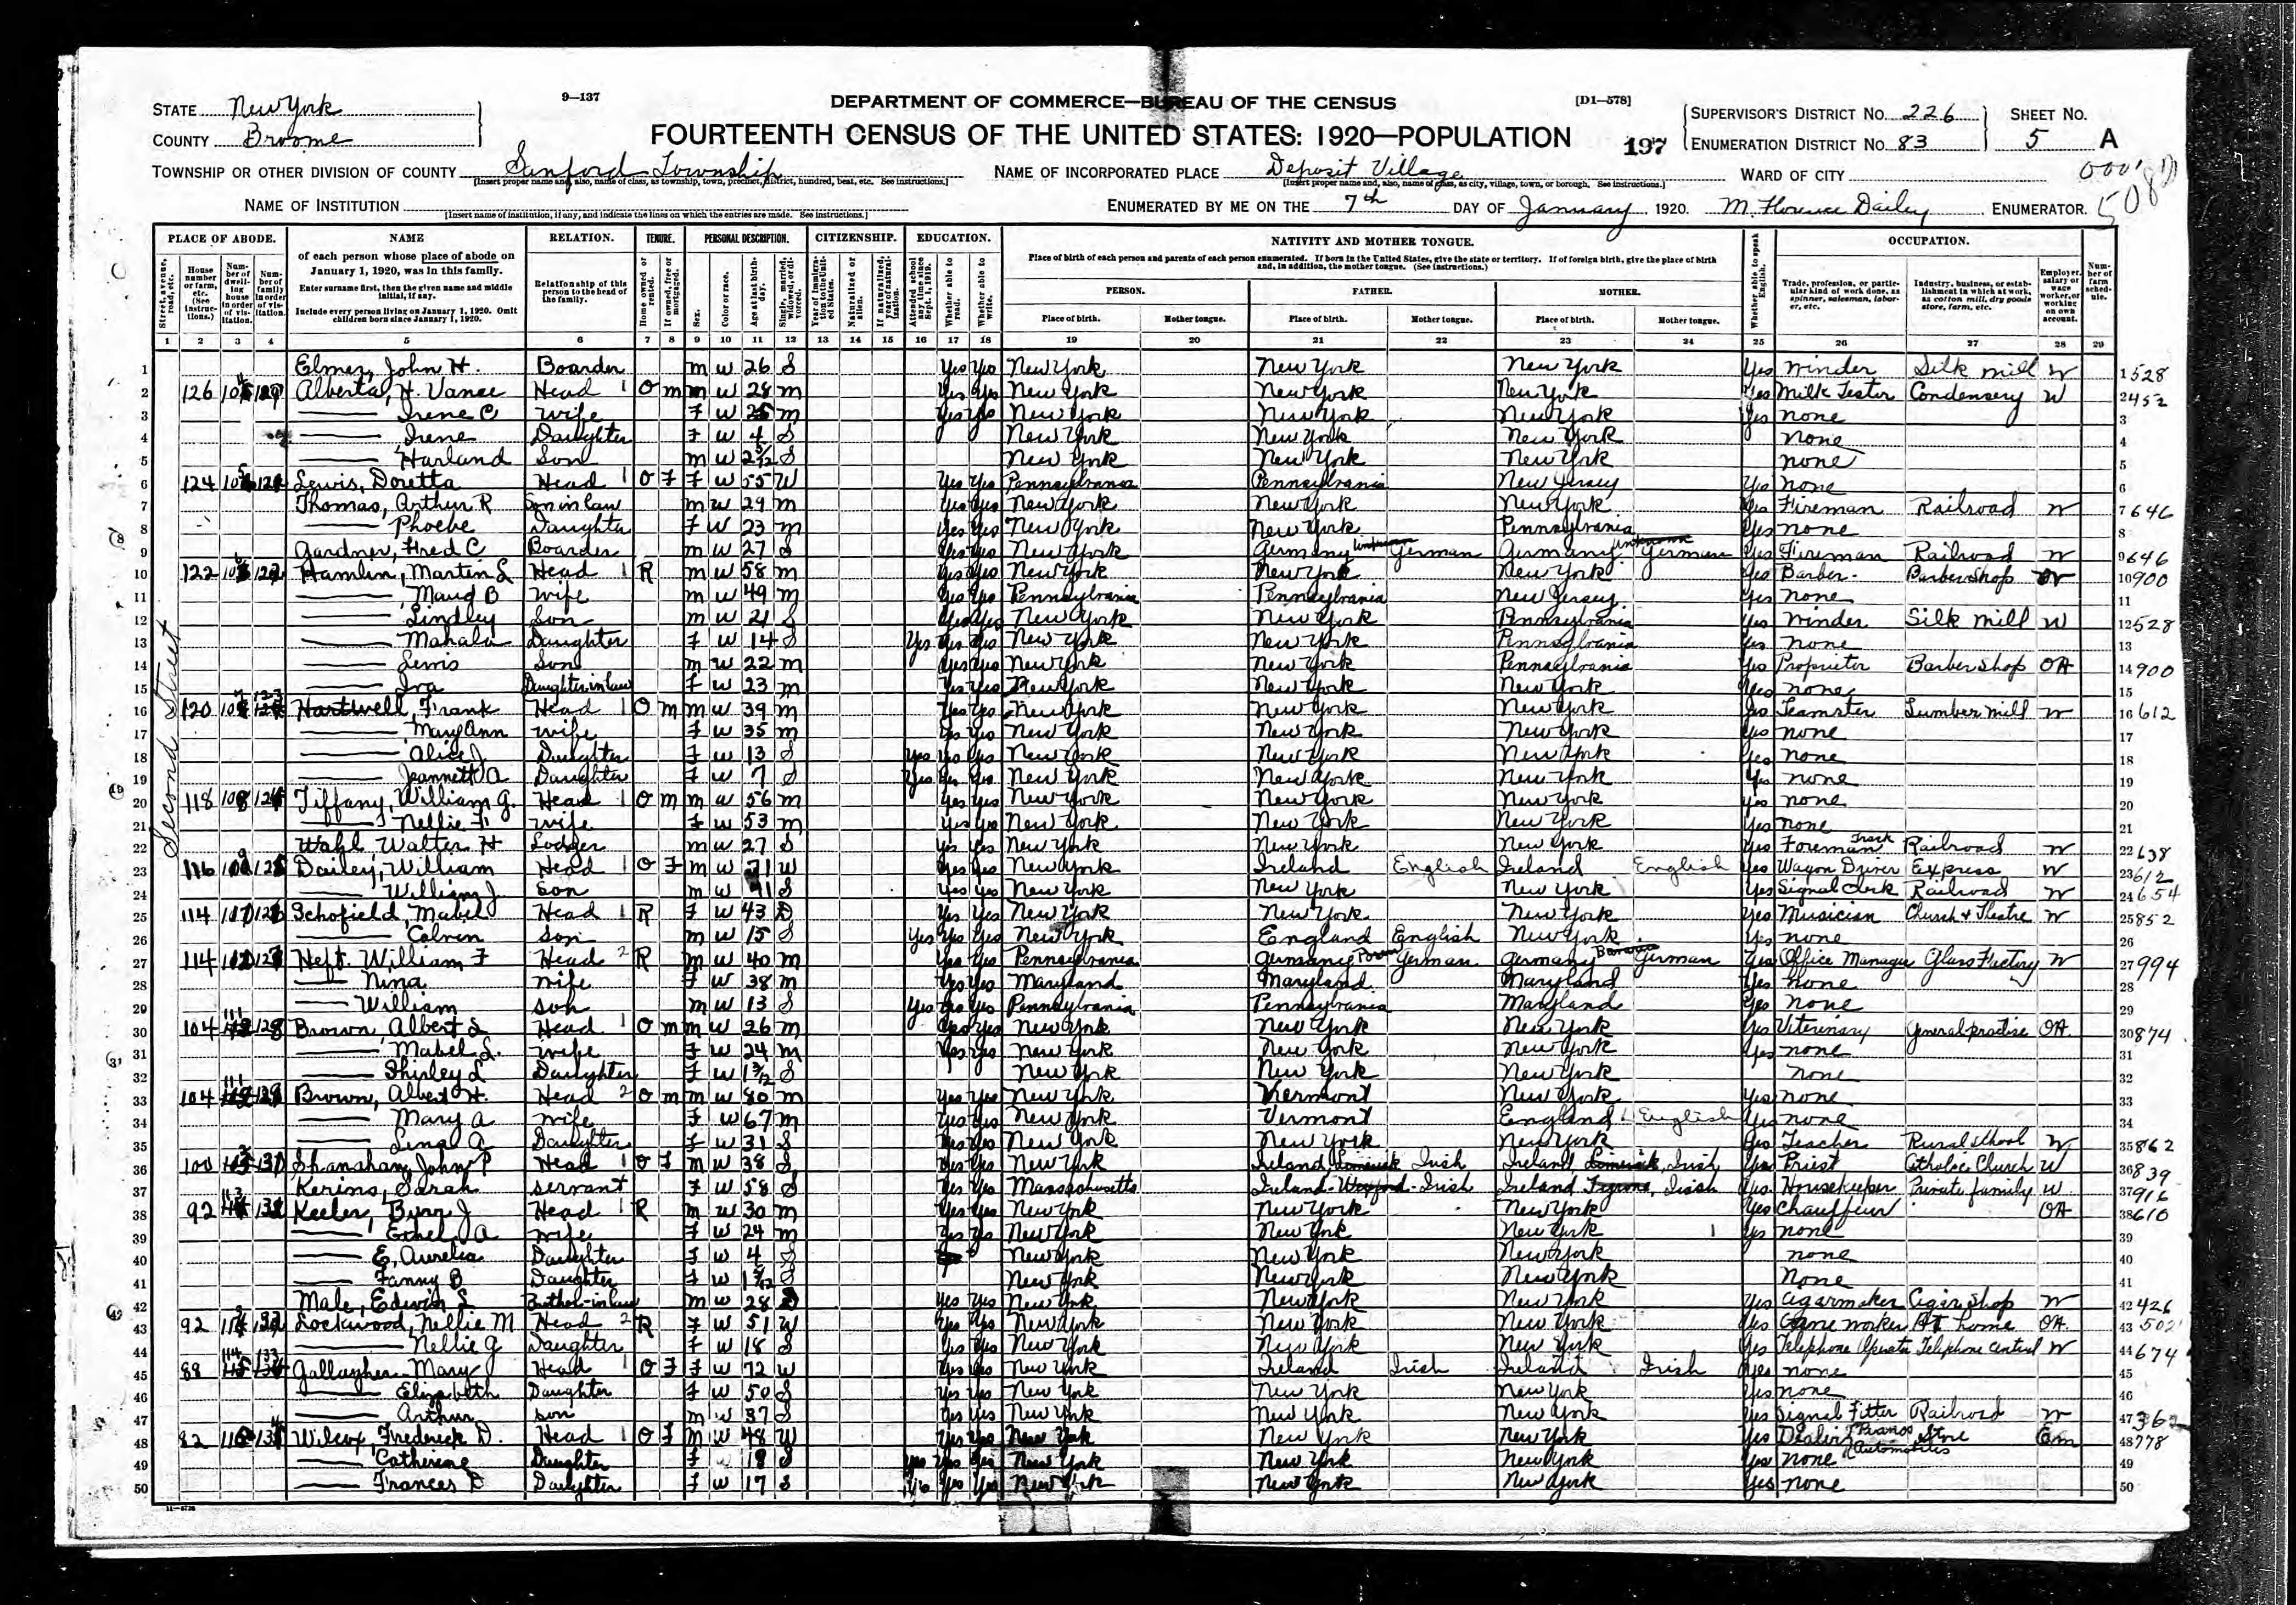 9—137
DEPARTMENT OF COMMERCE—BUREAU OF THE CENSUS
[D1—578]
STATE New York
COUNTY Broome
FOURTEENTH CENSUS OF THE UNITED STATES: 1920—POPULATION
197
SUPERVISOR'S DISTRICT NO. 226
ENUMERATION DISTRICT NO. 83
SHEET NO.
5 A
TOWNSHIP OR OTHER DIVISION OF COUNTY Sanford Township
[Insert proper name and, also, name of class, as township, town, precinct, district, hundred, beat, etc. See instructions.]
NAME OF INCORPORATED PLACE Deposit Village
[Insert proper name and, also, name of class, as city, village, town, or borough. See instructions.]
WARD OF CITY
NAME OF INSTITUTION
[Insert name of institution, if any, and indicate the lines on which the entries are made. See instructions.]
ENUMERATED BY ME ON THE 7th DAY OF January, 1920. M. Florence Dailey, ENUMERATOR.
PLACE OF ABODE. NAME RELATION. TENURE. PERSONAL DESCRIPTION. CITIZENSHIP. EDUCATION. NATIVITY AND MOTHER TONGUE. OCCUPATION.
Second Street
1 Elmer, John H. Boarder m w 26 S Yes Yes New York New York New York Yes Winder Silk mill W 528
2 126 Alberta, H. Vance Head 1 O m m w 28 m Yes Yes New York New York New York Yes Milk Tester Condensery W 452
3 —— Irene C wife F w 25 m Yes Yes New York New York New York Yes none
4 —— Irene Daughter F w 4 S New York New York New York none
5 —— Harland Son m w 2 S New York New York New York none
6 124 Lewis, Doretta Head 1 O F F w 55 W Yes Yes Pennsylvania Pennsylvania New Jersey Yes none
7 Thomas, Arthur R Son in law m w 29 m Yes Yes New York New York New York Yes Fireman Railroad W 646
8 —— Phoebe Daughter F W 23 m Yes Yes New York New York Pennsylvania Yes none
9 Gardner, Fred C Boarder m w 27 S Yes Yes New York Germany German Germany German Yes Fireman Railroad W 646
10 122 Hamlin, Martin L Head 1 R m w 58 m Yes Yes New York New York New York Yes Barber Barber Shop W 900
11 ——, Maud B wife m w 49 m Yes Yes Pennsylvania Pennsylvania New Jersey Yes none
12 —— Lindley Son m w 21 S Yes Yes New York New York Pennsylvania Yes Winder Silk Mill W 528
13 —— Mahala Daughter F w 14 S Yes Yes Yes New York New York Pennsylvania Yes none
14 —— Lewis Son m w 22 m Yes Yes New York New York Pennsylvania Yes Proprietor Barber Shop OA 900
15 —— Iva Daughter in law F w 23 m Yes Yes New York New York New York Yes none
16 120 Hartwell, Frank Head 1 O m m w 39 m Yes Yes New York New York New York Yes Teamster Lumber mill W 612
17 ——, Mary Ann wife F w 35 m Yes Yes New York New York New York Yes none
18 —— Alice J Daughter F w 13 S Yes Yes Yes New York New York New York Yes none
19 —— Jeannett A Daughter F w 7 S Yes Yes Yes New York New York New York Yes none
20 118 Tiffany, William G. Head 1 O m m w 56 m Yes Yes New York New York New York Yes none
21 —— Nellie F wife F w 53 m Yes Yes New York New York New York Yes none
22 Wahl Walter H Lodger m w 27 S Yes Yes New York New York New York Yes Foreman Track Railroad W 638
23 116 Dailey, William Head 1 O F m w 71 W Yes Yes New York Ireland English Ireland English Yes Wagon Driver Express W 612
24 —— William J. Son m w 41 S Yes Yes New York New York New York Yes Signal Clerk Railroad W 654
25 114 Schofield, Mabel Head 1 R F w 43 D Yes Yes New York New York New York Yes Musician Church & Theatre W 852
26 —— Colvin Son m w 15 S Yes Yes Yes New York England English New York Yes none
27 114 Heft. William F Head 2 R m w 40 m Yes Yes Pennsylvania Germany German Germany Bavaria German Yes Office Manager Glass Factory W 994
28 —— Nina wife F w 38 m Yes Yes Maryland Maryland Maryland Yes none
29 —— William son m w 13 S Yes Yes Yes Pennsylvania Pennsylvania Maryland Yes none
30 104 Brown, Albert S Head 1 O m m w 26 m Yes Yes New York New York New York Yes Veterinary General practise OA 874
31 —— Mabel L. wife F w 24 m Yes Yes New York New York New York Yes none
32 —— Shirley L Daughter F w 1 S New York New York New York none
33 104 Brown, Albert H. Head 2 O m m w 80 m Yes Yes New York Vermont New York Yes none
34 —— Mary A wife F w 67 m Yes Yes New York Vermont England English Yes none
35 —— Lena A Daughter F w 31 S Yes Yes New York New York New York Yes Teacher Rural school W 862
36 100 Shanahan, John P Head 1 O F m w 38 S Yes Yes New York Ireland, Limerick Irish Ireland, Limerick, Irish Yes Priest Catholic Church W 839
37 Kerins, Sarah servant F w 58 S Yes Yes Massachusetts Ireland Wexford Irish Ireland Tyrone, Irish Yes Housekeeper Private family W 916
38 92 Keeler, Burr J Head 1 R m w 30 m Yes Yes New York New York New York Yes Chauffeur OA 610
39 —— Ethel A wife F w 24 m Yes Yes New York New York New York Yes none
40 —— E, Aurelia Daughter F w 4 S New York New York New York none
41 —— Fanny B Daughter F w 1 S New York New York New York none
42 Male, Edwin S Brother-in-law m w 28 Yes Yes New York New York New York Yes Cigarmaker Cigar Shop W 426
43 92 Lockwood, Nellie M Head 2 R F w 51 W Yes Yes New York New York New York Yes worker At home OA 502
44 —— Nellie G Daughter F w 18 S Yes Yes New York New York New York Yes Telephone Operator Telephone Central W 674
45 88 Gallagher Mary Head 1 O F F w 72 W Yes Yes New York Ireland Irish Ireland Irish Yes none
46 —— Elizabeth Daughter F w 50 S Yes Yes New York New York New York Yes none
47 —— Arthur son m w 37 S Yes Yes New York New York New York Yes Signal Fitter Railroad W 362
48 82 Wilcox, Frederick D. Head 1 O F m w 48 W Yes Yes New York New York New York Yes Pianos Automobiles Store Em 778
49 —— Catherine Daughter F 18 S Yes Yes Yes New York New York New York Yes none
50 —— Frances D Daughter F w 17 S Yes Yes New York New York New York Yes none